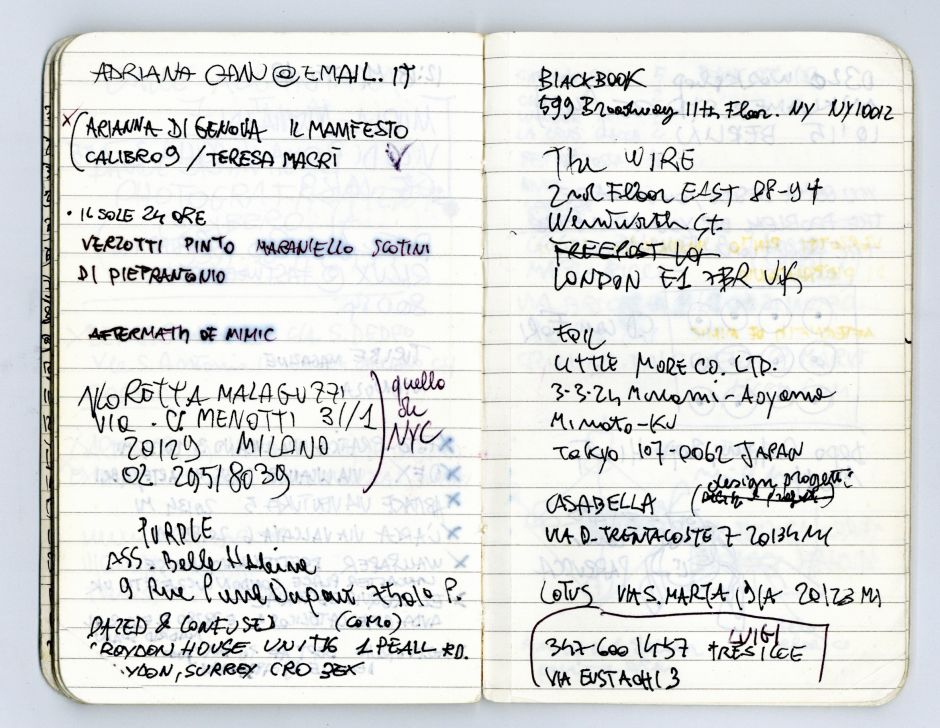 ADRIANA GANU@EMAIL.IT
ARIANNA DI GENOVA IL MANIFESTO
CALIBRO 9 / TERESA MACRÌ
• IL SOLE 24 ORE
VERZOTTI PINTO MARANIELLO SCOTINI
DI PIETRANTONIO
AFTERMATH OF MIMIC
NLORETTA MALAGUZZI
VIA . C. MENOTTI 3//1
20129 MILANO
02. 295/8039
quello
di
NYC
PURPLE
ASS. Belle Haleine
9 Rue Pierre Dupont 75010 P.
DAZED & CONFUSED (COMO)
ROYDON HOUSE UNIT 16 1 PEALL RD.
YDON, SURREY CRO 3EX
BLACKBOOK
599 Broadway 11th Floor. NY NY10012
The WIRE
2nd Floor EAST 88-94
Wentworth St.
FREEPOST
LONDON E1 7BR UK
FOIL
LITTLE MORE CO. LTD.
3-3-24 Minami-Aoyama
Minato-Ku
Tokyo 107-0062 JAPAN
CASABELLA (design progetti
VIA D. TRENTACOSTE 7 20134 MI
LOTUS VIA S. MARTA 19/A 20123 MI
347-600 1457 LUIGI
VIA EUSTACHI 3